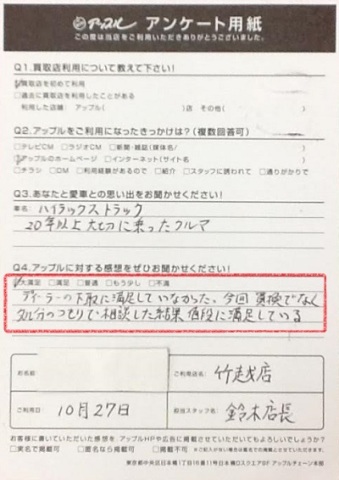 アップル アンケート用紙
この度は当店をご利用いただきありがとうございました。
Q1.買取店利用について教えて下さい!
買取店を初めて利用
□過去に買取店を利用したことがある
利用した店舗 アップル( )店 その他( )
Q2.アップルをご利用になったきっかけは?(複数回答可)
□テレビCM □ラジオCM □新聞・雑誌(媒体名/ )
アップルのホームページ □インターネット(サイト名 )
□チラシ □DM □利用経験があるので □紹介 □スタッフに誘われて □通りがかりで
Q3.あなたと愛車との思い出をお聞かせください!
車名/ハイラックストラック
20年以上大切に乗ったクルマ
Q4.アップルに対する感想をぜひお聞かせください!
大満足 □満足 □普通 □もう少し □不満
ディーラーの下取に満足していなかった。今回買換でなく
処分のつもりで相談した結果値段に満足している
お名前
ご利用店名/ 竹越店
ご利用日/ 10月27日
担当スタッフ名/ 鈴木店長
お客様に書いていただいた感想を アップルHPや広告に掲載させていただいてもよろしいでしょうか?
□実名で掲載可 □匿名なら掲載可 □掲載不可
東京都中央区日本橋1丁目16番11号日本橋Dスクエア5F アップルチェーン本部